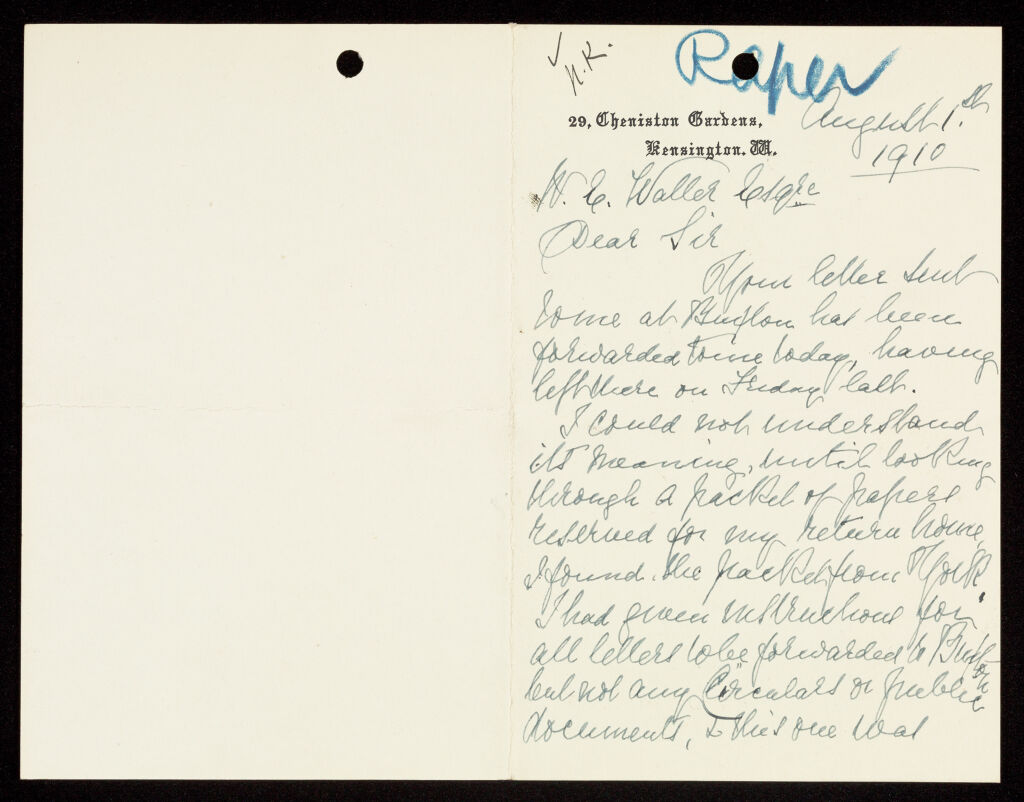 ✓ N.K.
Raper
29, Cheniston Gardens,
Kensington. W.
August 1.st
1910
W. E. Waller Esqre
Dear Sir
Your letter sent
to me at Buxton has been
forwarded to me today, having
left there on Friday last.
I could not understand
its meaning, until looking
through a packet of papers
reserved for my return home,
I found the packet from York.
I had given instructions for
all letters to be forwarded to Buxton
but not any Circulars or public
documents, & this one was